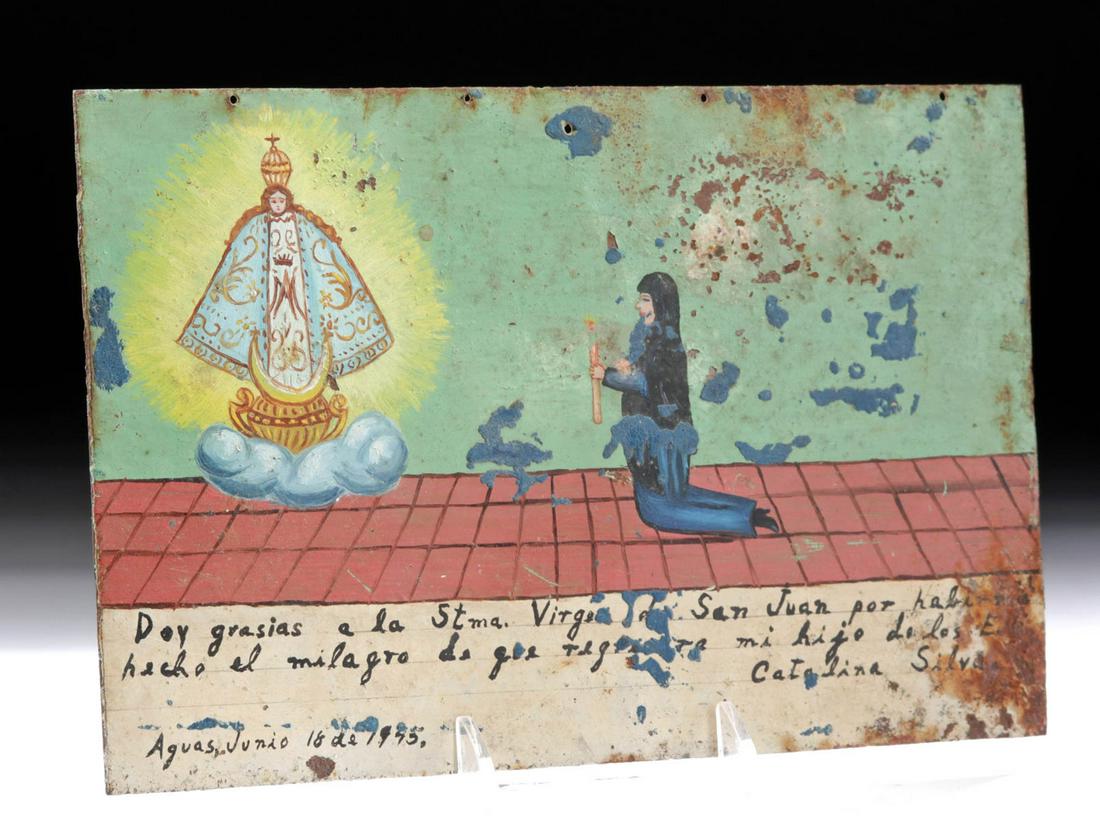 Doy grasias a la Stma. Virgen San Juan por
hecho el milagro de que mi hijo de los E.
Catalina Silva
Aguas, Junio 18 de 1945.